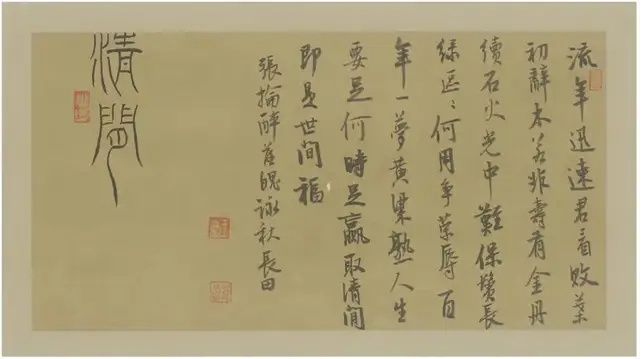 流年迅速君看敗葉
初辭木若非壽有金丹
續石火光中難保鬢長
綠区〻何用爭榮辱百
年一夢黃梁熟人生
要足何時足贏取清閒
即是世間福
張掄醉落魄詠秋長田
清閒